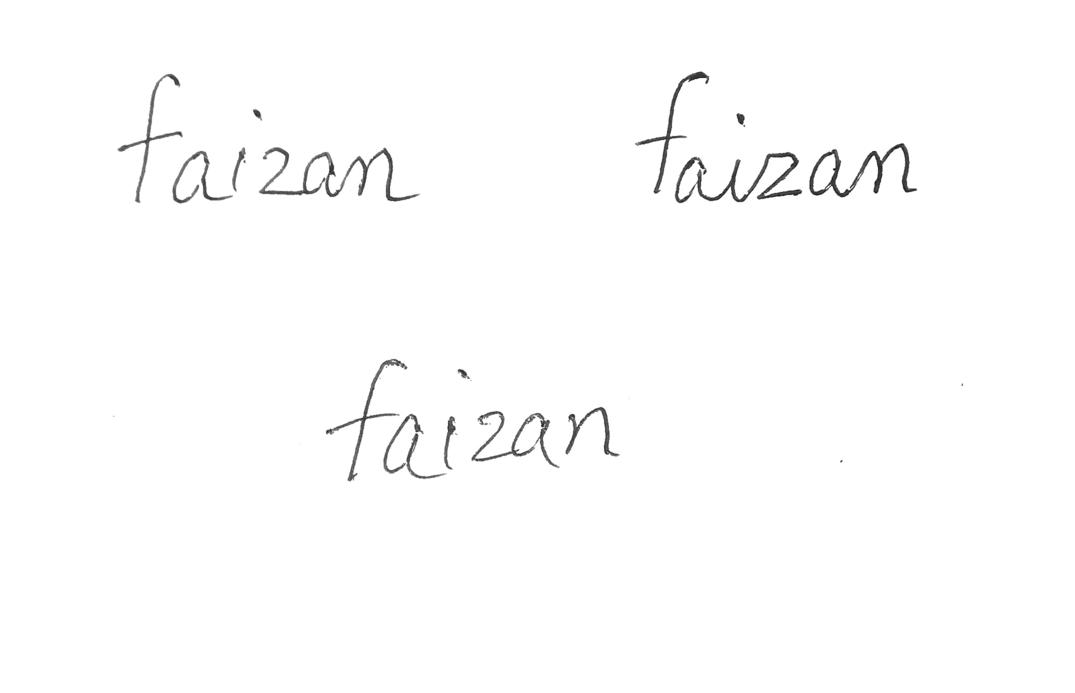 faizan faizan
faizan